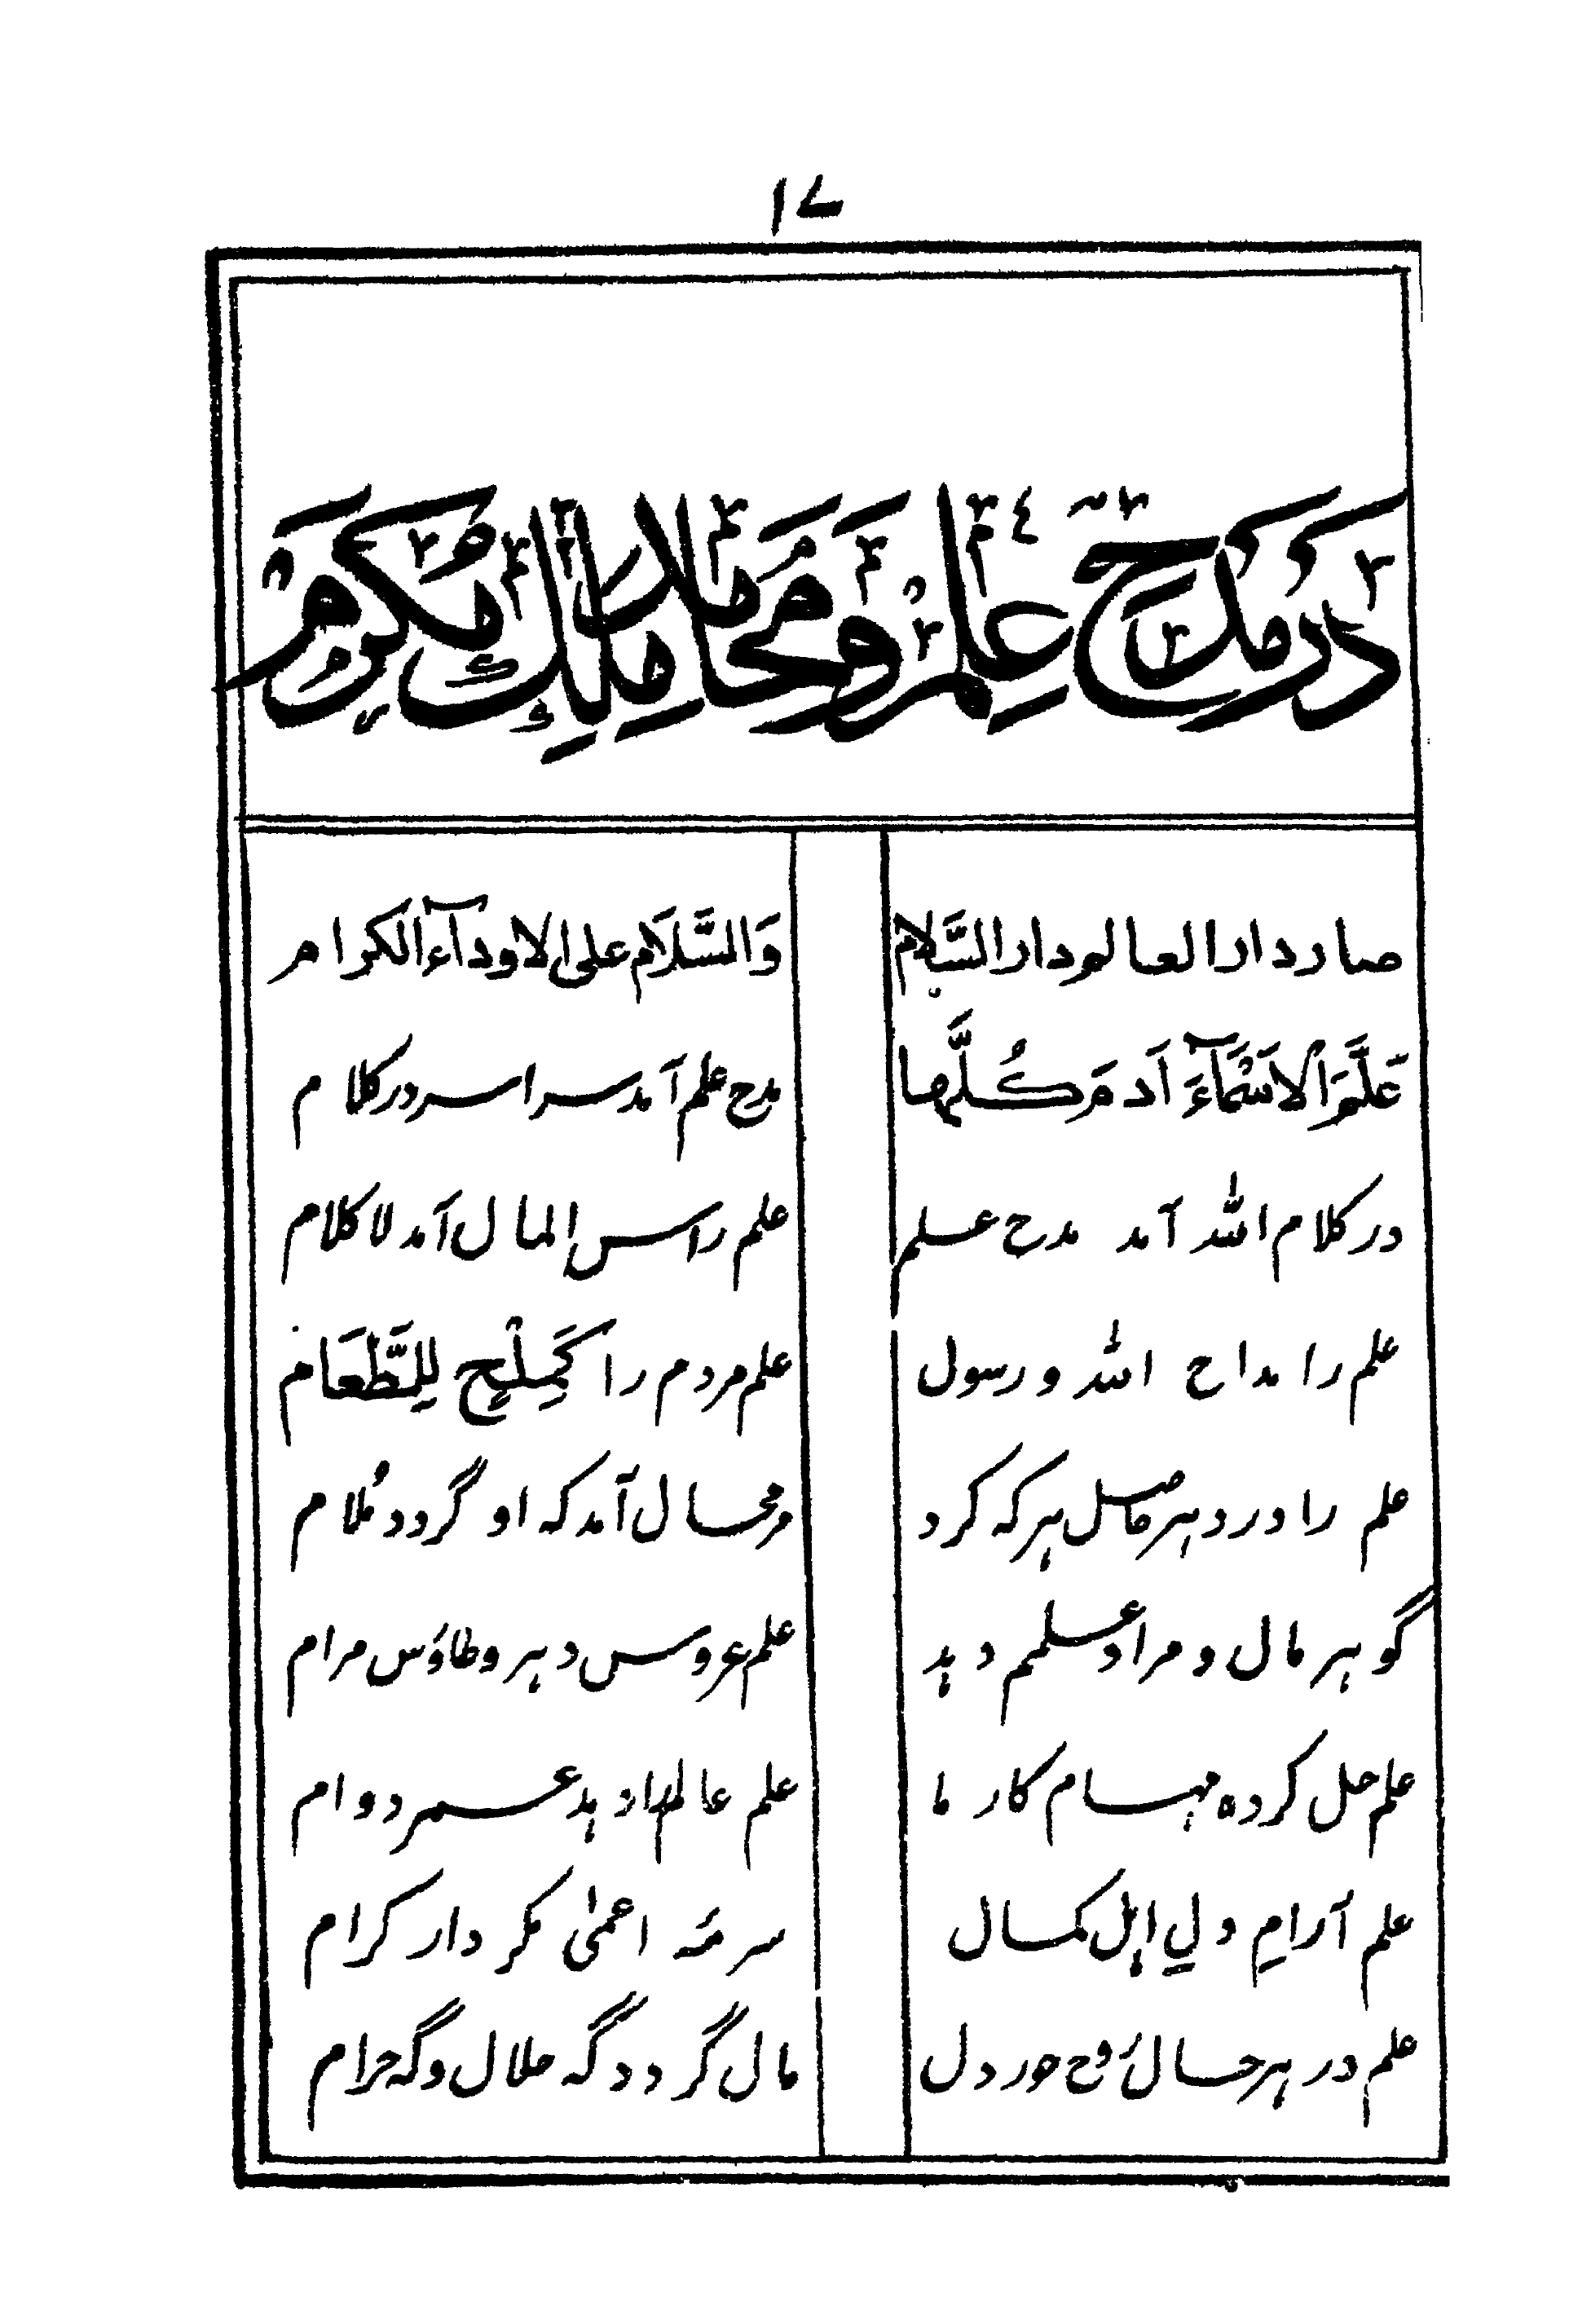 ۱۷
در مدح علم و محامد مالک مکرم
صار دار العالم دار السَّلام وَالسَّلَام علی الاودآء الکرام
عَلَّمَ الْاَسْمَآءَ اٰدَمَ كُلَّهَا مدح علم آمد سراسر در کلام
در کلام اللہ آمد مدح علم علم راس المال آمد لا کلام
علم را مداح اللہ و رسول علم مردم را کَمِلْحٍ لِلطَّعَام
علم را در دہر حاصل ہر کہ کرد مر محال آمد کہ او گردد مُلام
گوہر مال و مراد علمم دہد علم عروس دہر و طاؤس مرام
علم حل کردہ مہام کار ما علم عالم را دہد عمر دوام
علم آرامِ ولیِ اہلِ کمال سرمہٴ اعمیٰ مکر دار کرام
علم در ہر حال رُوح حور دل مال گردد گہ حلال و گہ حرام